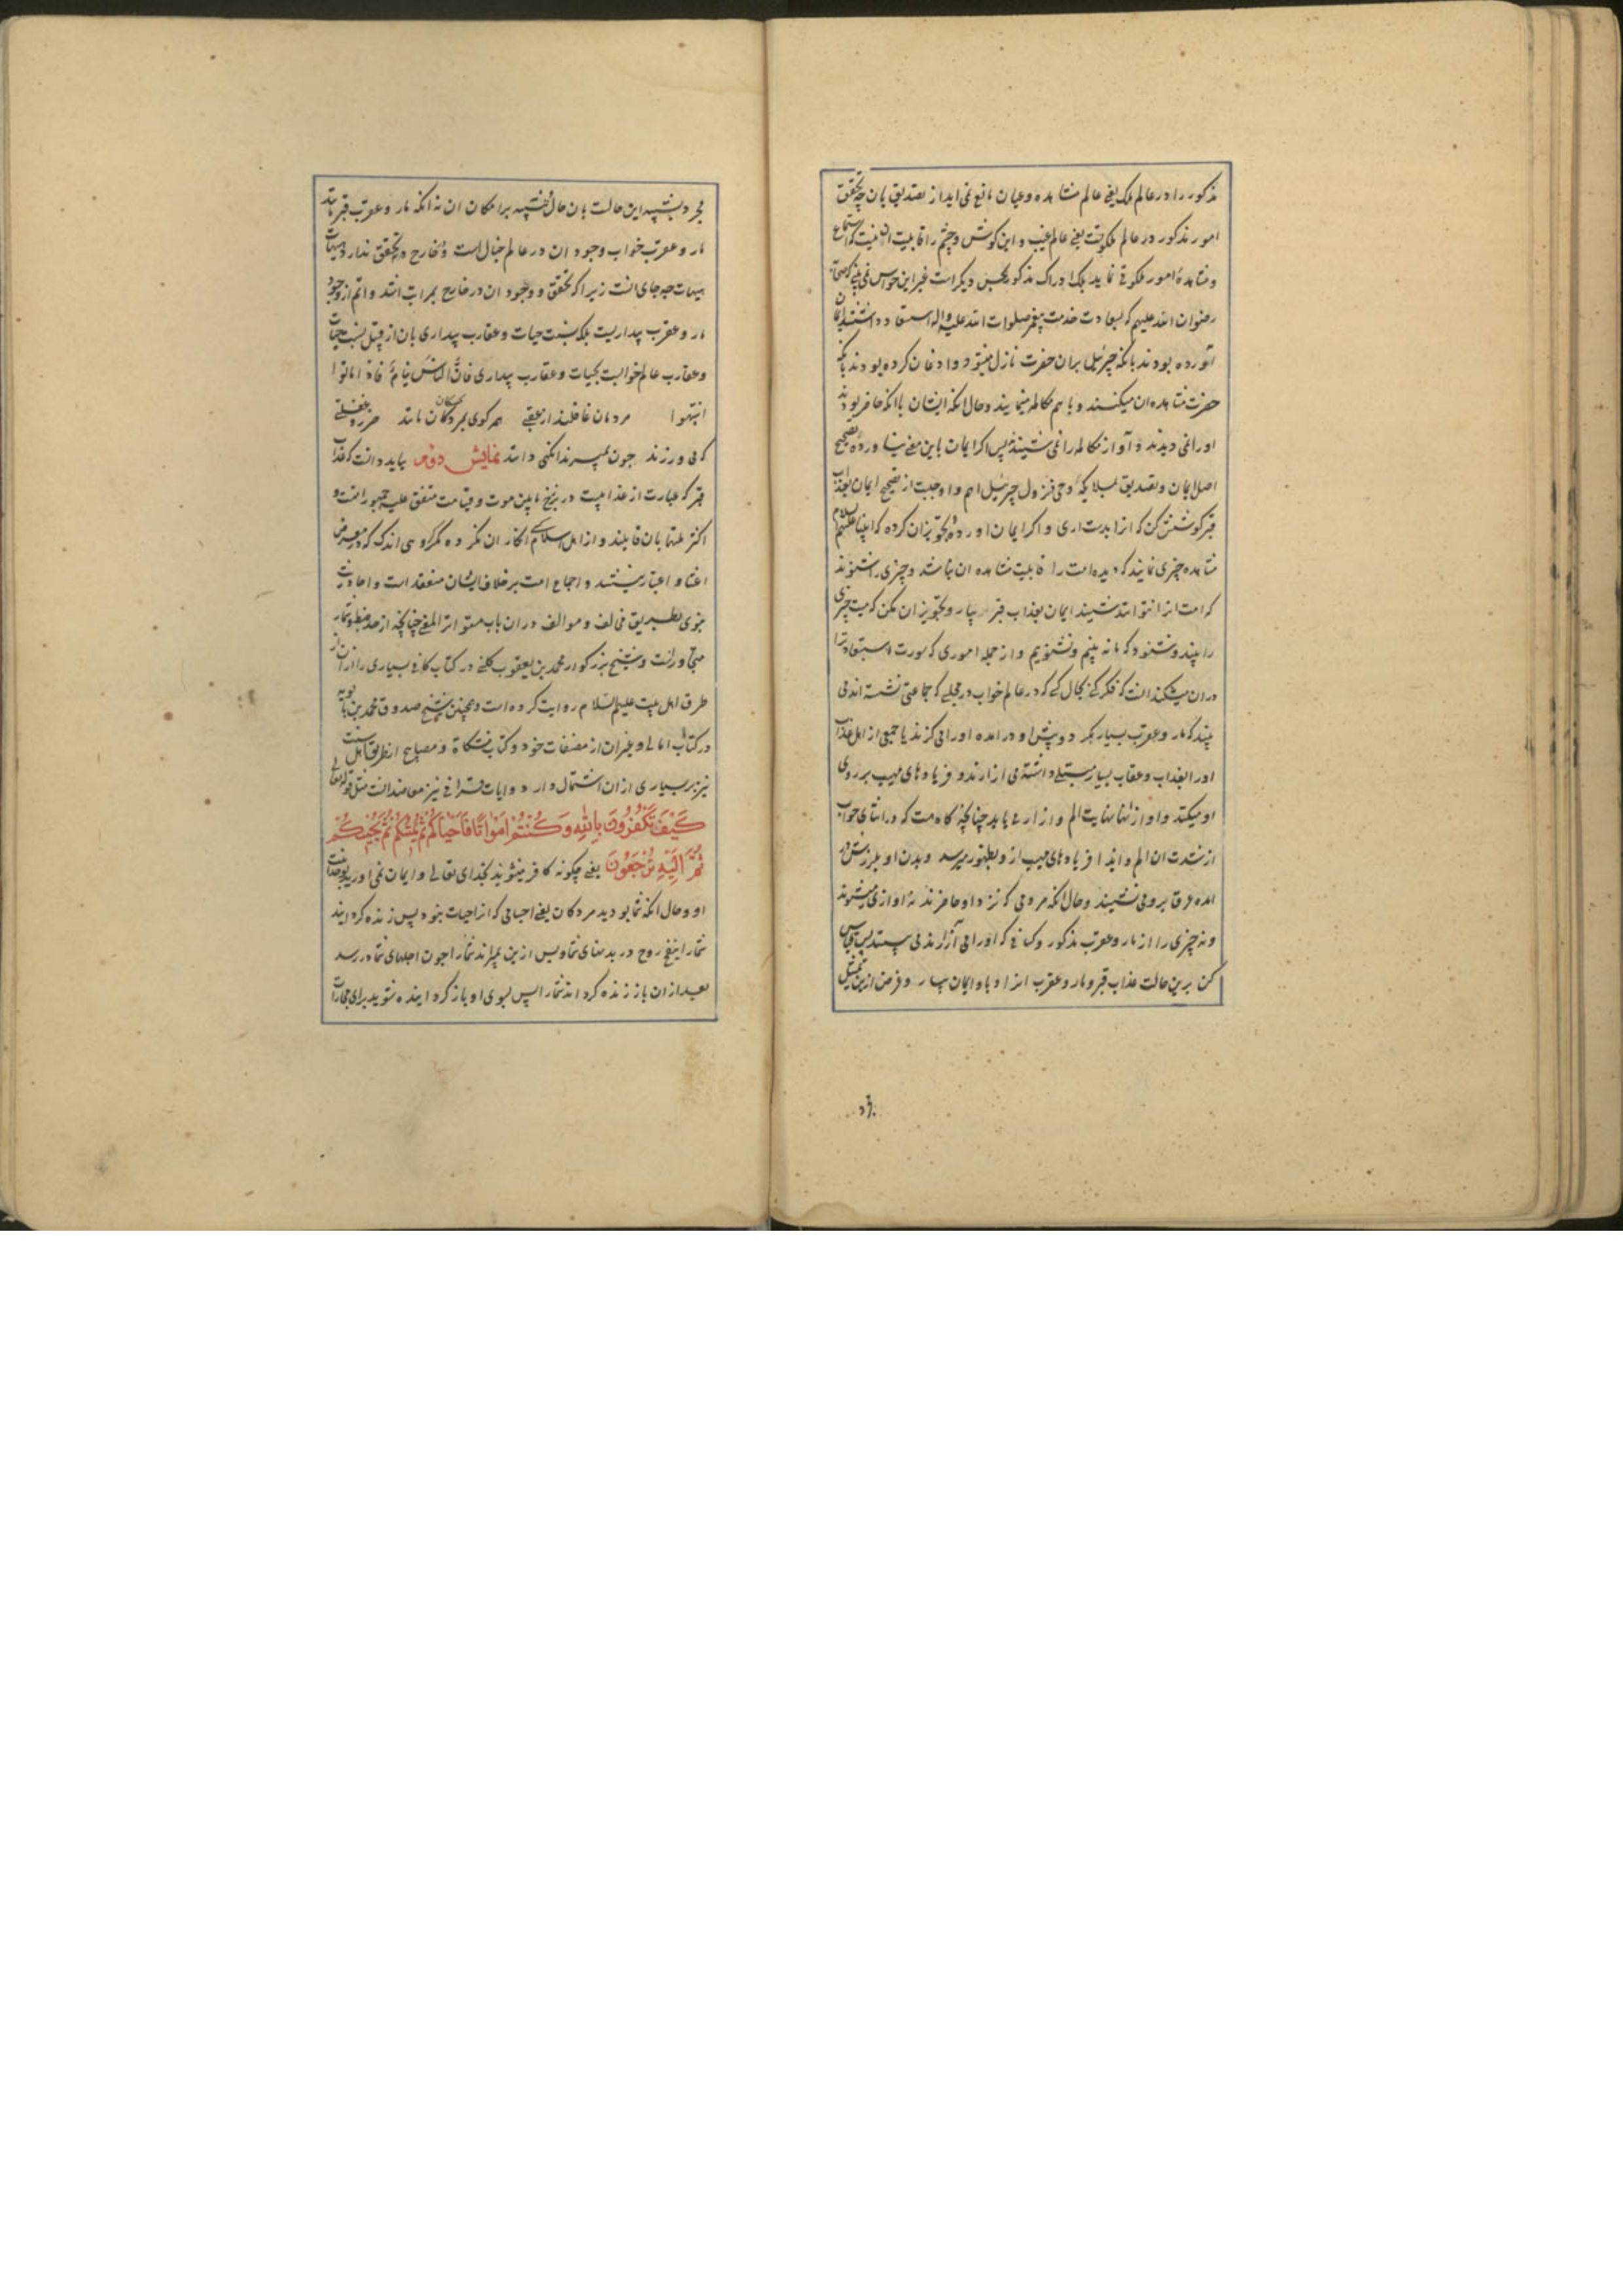 مذکور را در عالم ملک یعنی عالم مشاهده و عیان مانع نمی اید از تصدیق بان چه تحقق
امور مذکور در عالم ملکوتست یعنی عالم غیب و این کوش و چشم را قابلیت ان نیست که استماع
و مشاهدهٔ امور ملکوتی نماید بلکه ادراک مذکور بحس دیکر است غیر این حواس نمی بینی که صحابه
رضوان الله علیهم که بسعادت خدمت پیغمبر صلوات الله علیه و اله استسعاد داشتند ایمان
آورده بودند بانکه جبرئیل بران حضرت نازل میشود و اذعان کرده بودند بانکه
حضرت مشاهده ان میکنند و با هم مکالمه مینمایند و حال انکه ایشان باانکه حاضر بودند
او را نمی دیدند و آواز مکالمه را نمی شنیدند پس اکر ایمان باین معنی نیاورده تصحیح
اصل ایمان و تصدیق بملایکه و وحی و نزول جبرئیل اهم و اوجبست از تصحیح ایمان بعذاب
قبر کوشش کن که انرا بدست اری و اکر ایمان اورده و تجویز ان کرده که انبیا علیهم السلام
مشاهده چیزی نمایند که دیده امت را قابلیت مشاهده ان نباشد و چیزی را شنوند
که امت انرا نتوانند شنید ایمان بعذاب قبر بیار و تجویز ان مکن که میت چیزی
را بیند و شنود که ما نه بینیم و نشنویم و از جمله اموری که سورت استبعاد ترا
دران میشکند انست که فکر کنی بحال کسی که در عالم خواب در مجلسی که جماعتی نشسته اند می
بیند که مار و عقرب بسیار بکرد و پیش او در امده او را می کزند یا جمعی از اهل عذاب
او را بعذاب و عقاب بسیار مبتلی داشته می ازارند و فریادهای مهیب بر روی
او میکنند و او از انها نهایت الم و ازار می یابد چنانچه کاه هست که در اثنای خواب
از شدت ان الم و ایذا فریادهای مهیب از و بظهور میرسد و بدن او بلرزش در
امده عرق برو می نشیند و حال انکه مردمی که نزد او حاضرند نه اوازی میشنوند
و نه چیزی را از مار و عقرب مذکور و کسانی که او را می آزارند می بینند پس قیاس
کن برین حالت عذاب قبر و مار و عقرب انرا و باو ایمان بیار و غرض ازین تمثیل
مجرد تشبیه این حالت بان حال تنبیه بر امکان ان نه انکه مار و عقرب قبر مانند
مار و عقرب خواب وجود ان در عالم خیال است و بخارج در تحقق ندارد هیهات
هیهات چه جای انست زیرا که تحقق و وجود ان در خارج بمراتب اشد و اتم از وجود
مار و عقرب بیداریست بلکه نسبت حیات و عقارب بیداری بان از قبیل نسبت حیات
و عقارب عالم خوابست بحیات و عقارب بیداری فان الناس نیام فاذا ماتوا
انتبهوا مردمان غافلند از عقبی همه کوی بمردکان مانند ضرر غفلتی
که می ورزند جون بمیرند انکهی دانند نمایش دوم بباید دانست که عذاب
قبر که عبارت از عذابیست در برزخ مابین موت و قیامت متفق علیه جمهور امتست و
اکثر ملتها بان قایلند و از اهل اسلام انکار ان نکرده مکر کروهی اندک که در معرض
اعتنا و اعتبار نیستند و اجماع امت بر خلاف ایشان منعقد است و احادیث
نبوی بطریق مخالف و موالف دران باب متواتر المعنی چنانچه از حد ضبط و شمار
متجاوزست و شیخ بزرکوار محمد بن یعقوب کلینی در کتاب کافی بسیاری را ازان از
طرق اهل بیت علیهم السلام روایت کرده است و همچنین شیخ صدوق محمد بن بابویه
در کتاب امالی و غیر ان از مصنفات خود و کتاب مشکاة و مصابیح از طریق اهل سنت
نیز بر بسیاری ازان اشتمال دارد و ایات قرانی نیز معاضد انست مثل قوله تعالی
كَيْفَ تَكْفُرُونَ بِاللهِ وَكُنْتُمْ اَمْوَاتًا فَاَحْيَاكُمْ ثُمَّ يُمِيتُكُمْ ثُمَّ يُحْيِيكُمْ
ثُمَّ اِلَيْهِ تُرْجَعُونَ یعنی چکونه کافر میشوید بخدای تعالی و ایمان نمی اورید بوحدانیت
او و حال انکه شما بودید مردکان یعنی اجسامی که انرا حیات نبود پس زنده کردانید
شما را بنفخ روح در بدنهای شما و پس ازین بمیراند شما را جون اجلهای شما در رسد
بعد ازان باز زنده کرداند شما را پس بسوی او باز کردانیده شوید برای مجازات